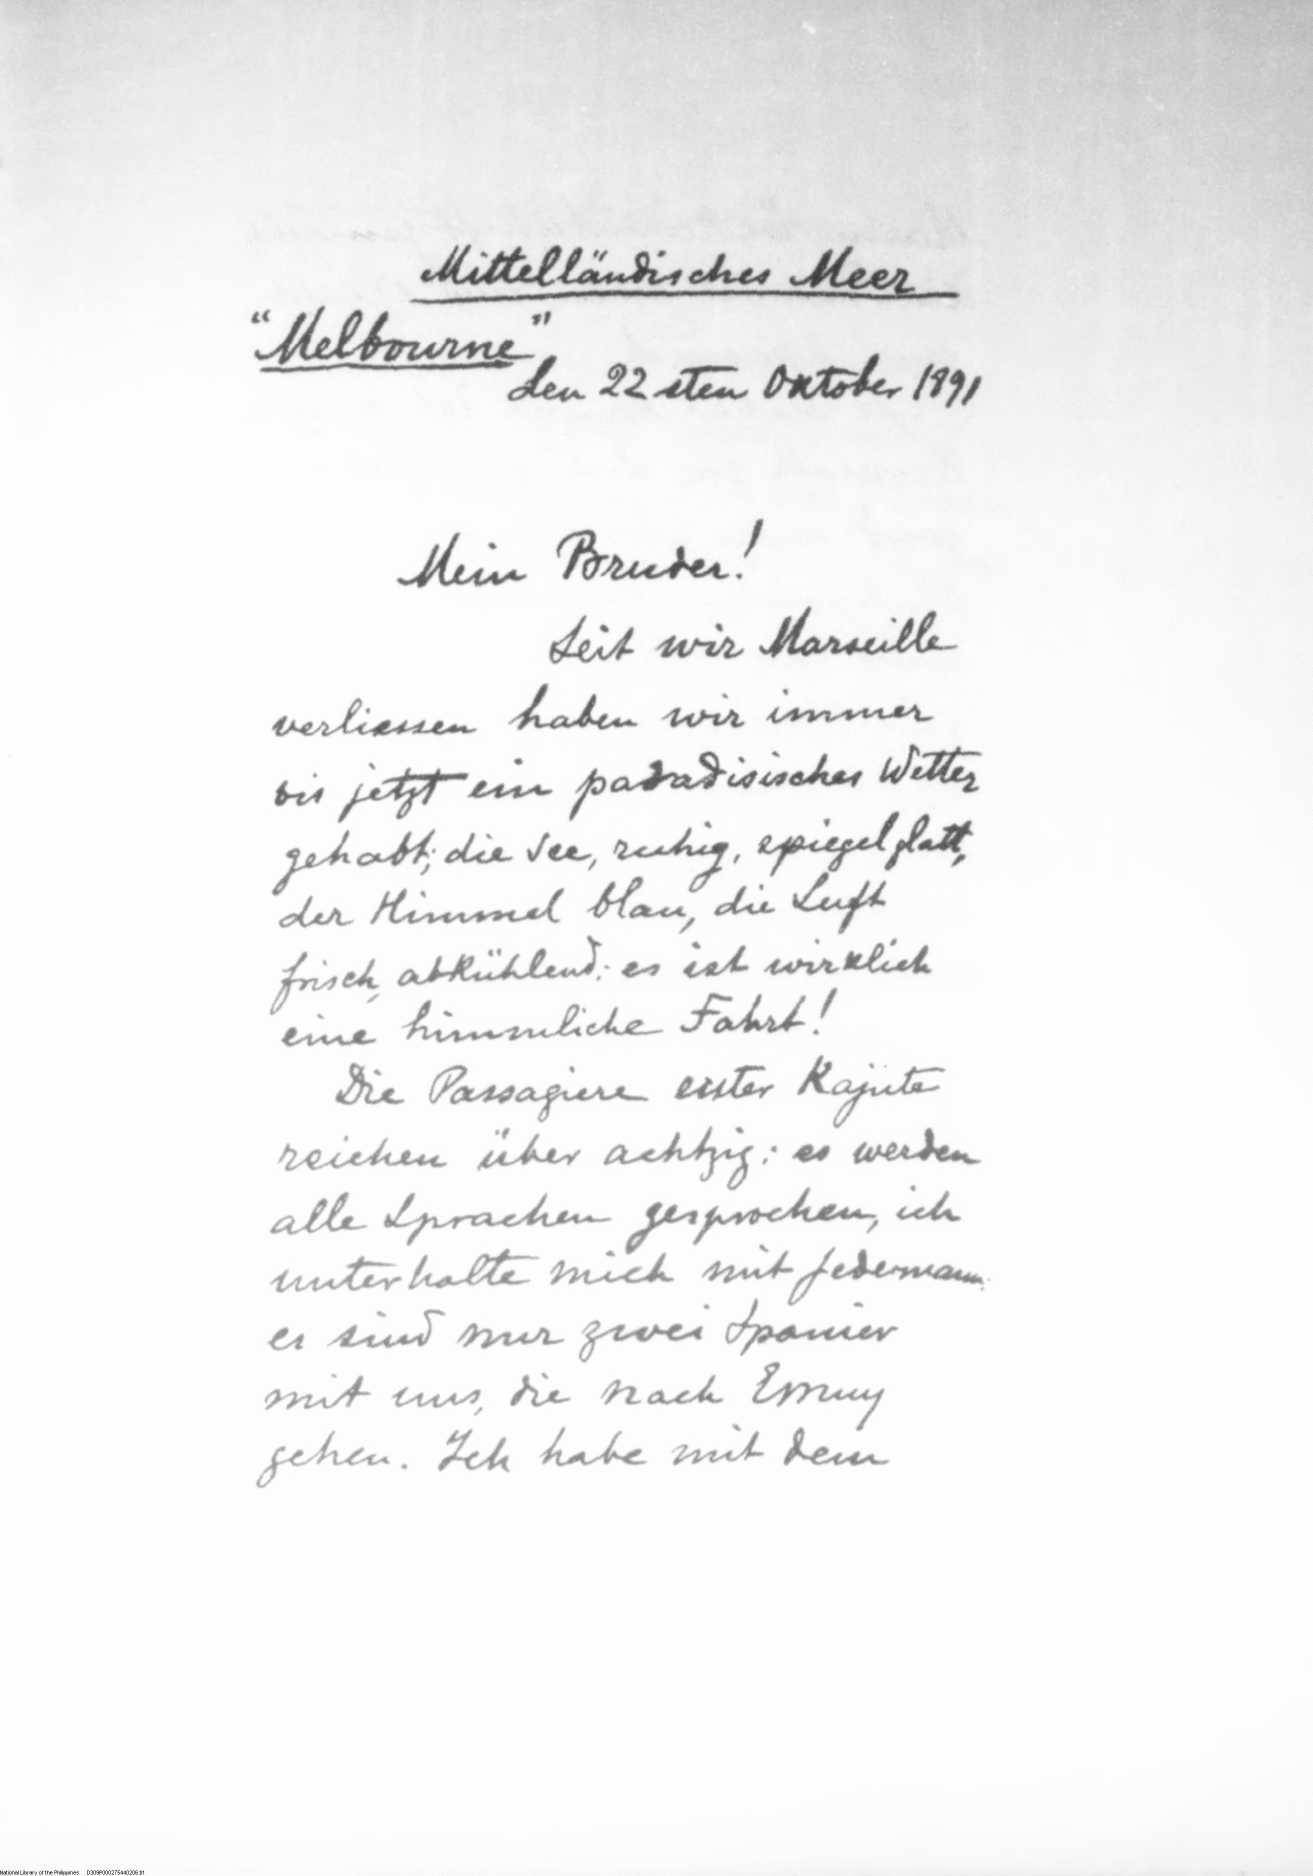 Mittelländisches Meer
"Melbourne"
den 22 sten Oktober 1891
Mein Bruder!
Seit wir Marseille
verliessen haben wir immer
bis jetzt ein paradisisches Wetter
gehabt; die See, ruhig, spiegelglatt,
der Himmel blau, die Luft
frisch, abkühlend: es ist wirklich
eine himmliche Fahrt!
Die Passagiere erster Kajüte
reichen über achtzig: es werden
alle Sprachen gesprochen, ich
unterhalte mich mit Jedermann.
es sind nur zwei Spanier
mit uns, die nach Emuy
gehen. Ich habe mit dem
National Library of the Philippines D309P000275440206.tif